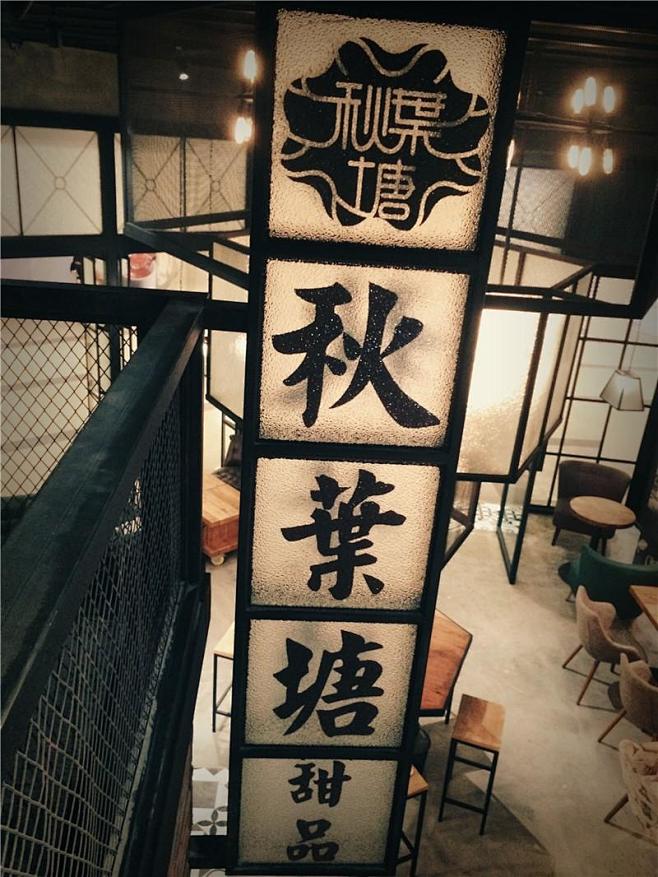 秋葉
塘
秋
葉
塘
甜
品